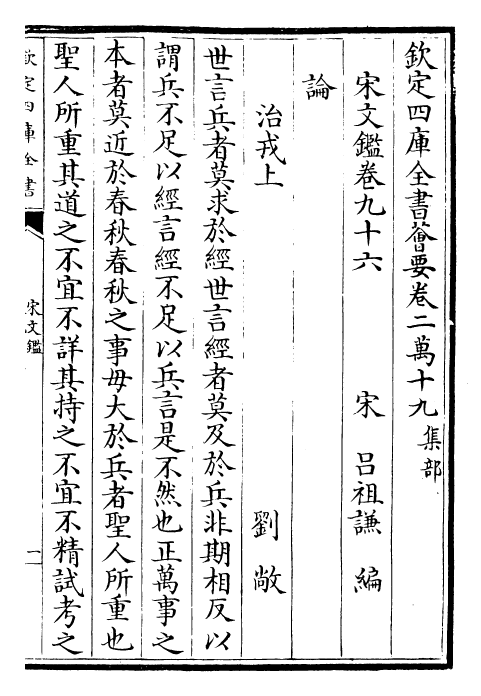 欽定四庫全書薈要卷二萬十九集部
宋文鑑卷九十六　宋　呂祖謙　編
論
治戎上　劉敞
世言兵者莫求於經世言經者莫及於兵非期相反以
謂兵不足以經言經不足以兵言是不然也正萬事之
本者莫近於春秋春秋之事毋大於兵者聖人所重也
聖人所重其道之不宜不詳其持之不宜不精試考之
欽定四庫全書
宋文鑑
一